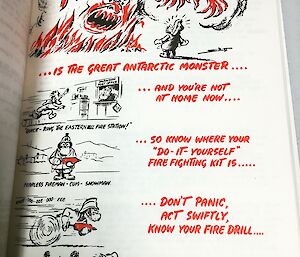 ...IS THE GREAT ANTARCTIC MONSTER....
... AND YOU'RE NOT
AT HOME NOW....
"QUICK - RING THE EASTERN HILL FIRE STATION!"
...SO KNOW WHERE YOUR
"DO-IT-YOURSELF"
FIRE FIGHTING KIT IS.....
FEARLESS FIREMAN - CUM - SNOWMAN.
.... DON'T PANIC,
ACT SWIFTLY,
KNOW YOUR FIRE DRILL....